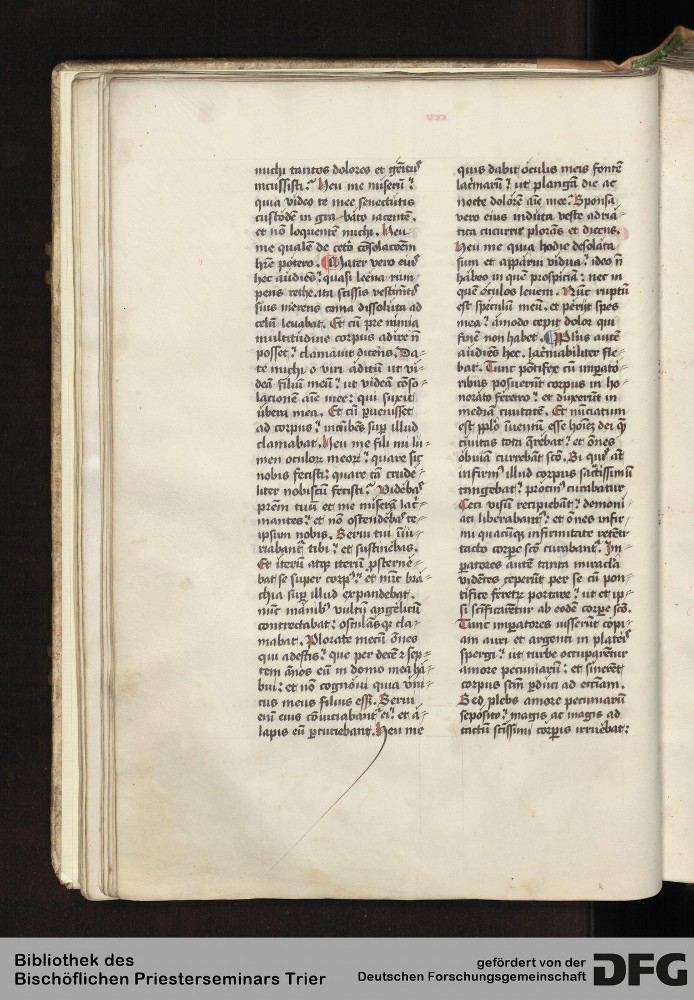 michi tantos dolores et gēitꝰ
incussisti. Heu me miserū?
quia video te mee senectutis
custodē in gra-bato iacentē.
et nō loquentē michi. Heu
me qualē de cetō cōsolacoēm
hr̄e potero. Mater vero eiꝰ
hec audiēs? quasi leena rum
pens rethe. ita scissis vestimtꝭ
suis merens coma dissoluta ad
celū leuabat. Et cū pre nimia
multitudine corpus adire nō
posset? clamauit dicens. Da-
te michi o viri aditū ut vi-
deā filiū meū? ut videā cōso-
lacionem aīe mee: qui suxit
ubera mea. Et cū ꝑuenisset
ad corpus? incūbēs suꝑ illud
clamabat. Heu me fili mi lu-
men oculorꝝ meorꝝ? quare sic
nobis fecisti? quare tā crude-
liter nobiscū fecisti? Videbaˢ
pr̄em tuū et me miserā lac̄-
mantes? et nō ostendebaˢ te-
ipsum nobis. Serui tui iniu-
riabantˀ tibi? et sustinebas.
Et iterū atqꝫ iterū ꝓsterne-
bat se super corpꝰ? et nūc bra-
chia suꝑ illud expandebat.
nūc manibꝰ vultū angelicū
contrectabat: osculāsqꝫ cla-
mabat. Plorate mecū ōnes
qui adestis? que per decē ⁊ sep-
tem ānos eū in domo mea ha-
bui: et nō cognoui quia vni-
cus meus filius esſꝫ. Serui
enī eius cōuiciabantˀ ei? et a-
lapis eū ꝑcuciebant. Heu me
quis dabit oculis meis fontē
lac̄marū? ut plangā die ac
nocte dolorē aīe mee? Sponsa
vero eius induta veste adria-
tica cucurrit plorās et dicens.
Heu me quia hodie desolata
sum et apparui vidua? ideo nō
habeo in quē prospiciā: nec in
quē oculos leuem. Nūc ruptū
est speculū meū. et periit spes
mea? amodo cepit dolor qui
finē non habet. Pplūs autē
audiēs hec. lac̄mabiliter fle-
bat. Tunc pōtifex cū imꝑato-
ribus posuerūt corpus in ho-
norato feretro? et duxerūt in
mediā ciuitatē. Et nūciatum
est pplo īuentū esse hoīeꝫ dei qͣ
ciuitas tota q̄rebat? et ōnes
obuiā currebāt sc̄o. Si quiˢ aūt
infirmꝰ illud corpus sac̄tissimū
tangebat? protinꝰ curabatur
Ceci visū recipiebāt? demoni-
aci liberabantˀ? et ōnes infir-
mi quacūqꝫ infirmitate retēti
tacto corpe sc̄o curabantˀ. Im-
ꝑatores autē tanta miracla
vidētes ceperūt per se cū pon-
tifice feretꝝ portare? ut et ip-
si sc̄ificarētur ab eodē corpe sc̄o.
Tunc imꝑatores iusserūt copi-
am auri et argenti in plateiˢ
spergi? ut turbe occuparētur
amore pecuniarū: et sinerēt
corpus sc̄m ꝑduci ad ecc̄iam.
Sed plebs amore pecuniarū
seposito? magis ac magis ad
tactū sc̄issimi corpis irruebat:
Bibliothek des
Bischöflichen Priesterseminars Trier
gefördert von der
Deutschen Forschungsgemeinschaft
DFG